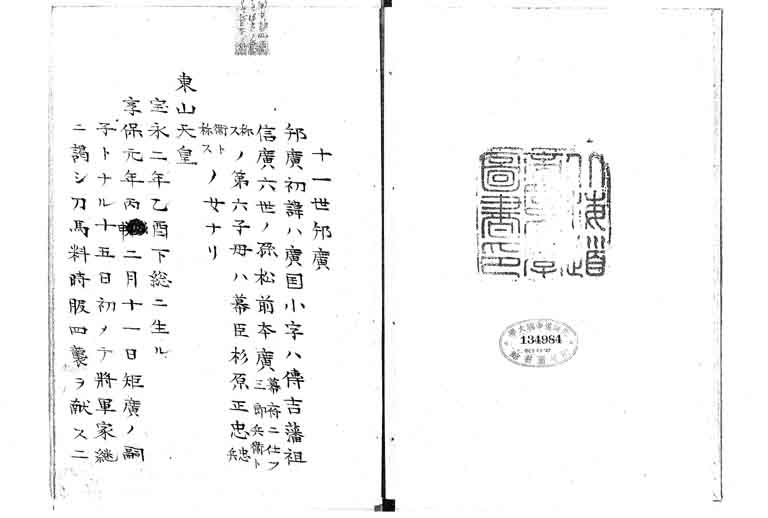 圖書印
134984
十一世邦廣
邦廣初諱ハ廣国小字ハ傳吉藩祖
信廣六世ノ孫松前本廣幕府ニ仕フ三郎兵衛ト
称スノ第六子母ハ幕臣杉原正忠忠兵
衛ト称スノ女ナリ
東山天皇
宝永二年乙酉下総ニ生ル
享保元年丙二月十一日矩廣ノ嗣
子トナル十五日初メテ將軍家継
ニ謁シ刀馬料時服四襲ヲ献スニ